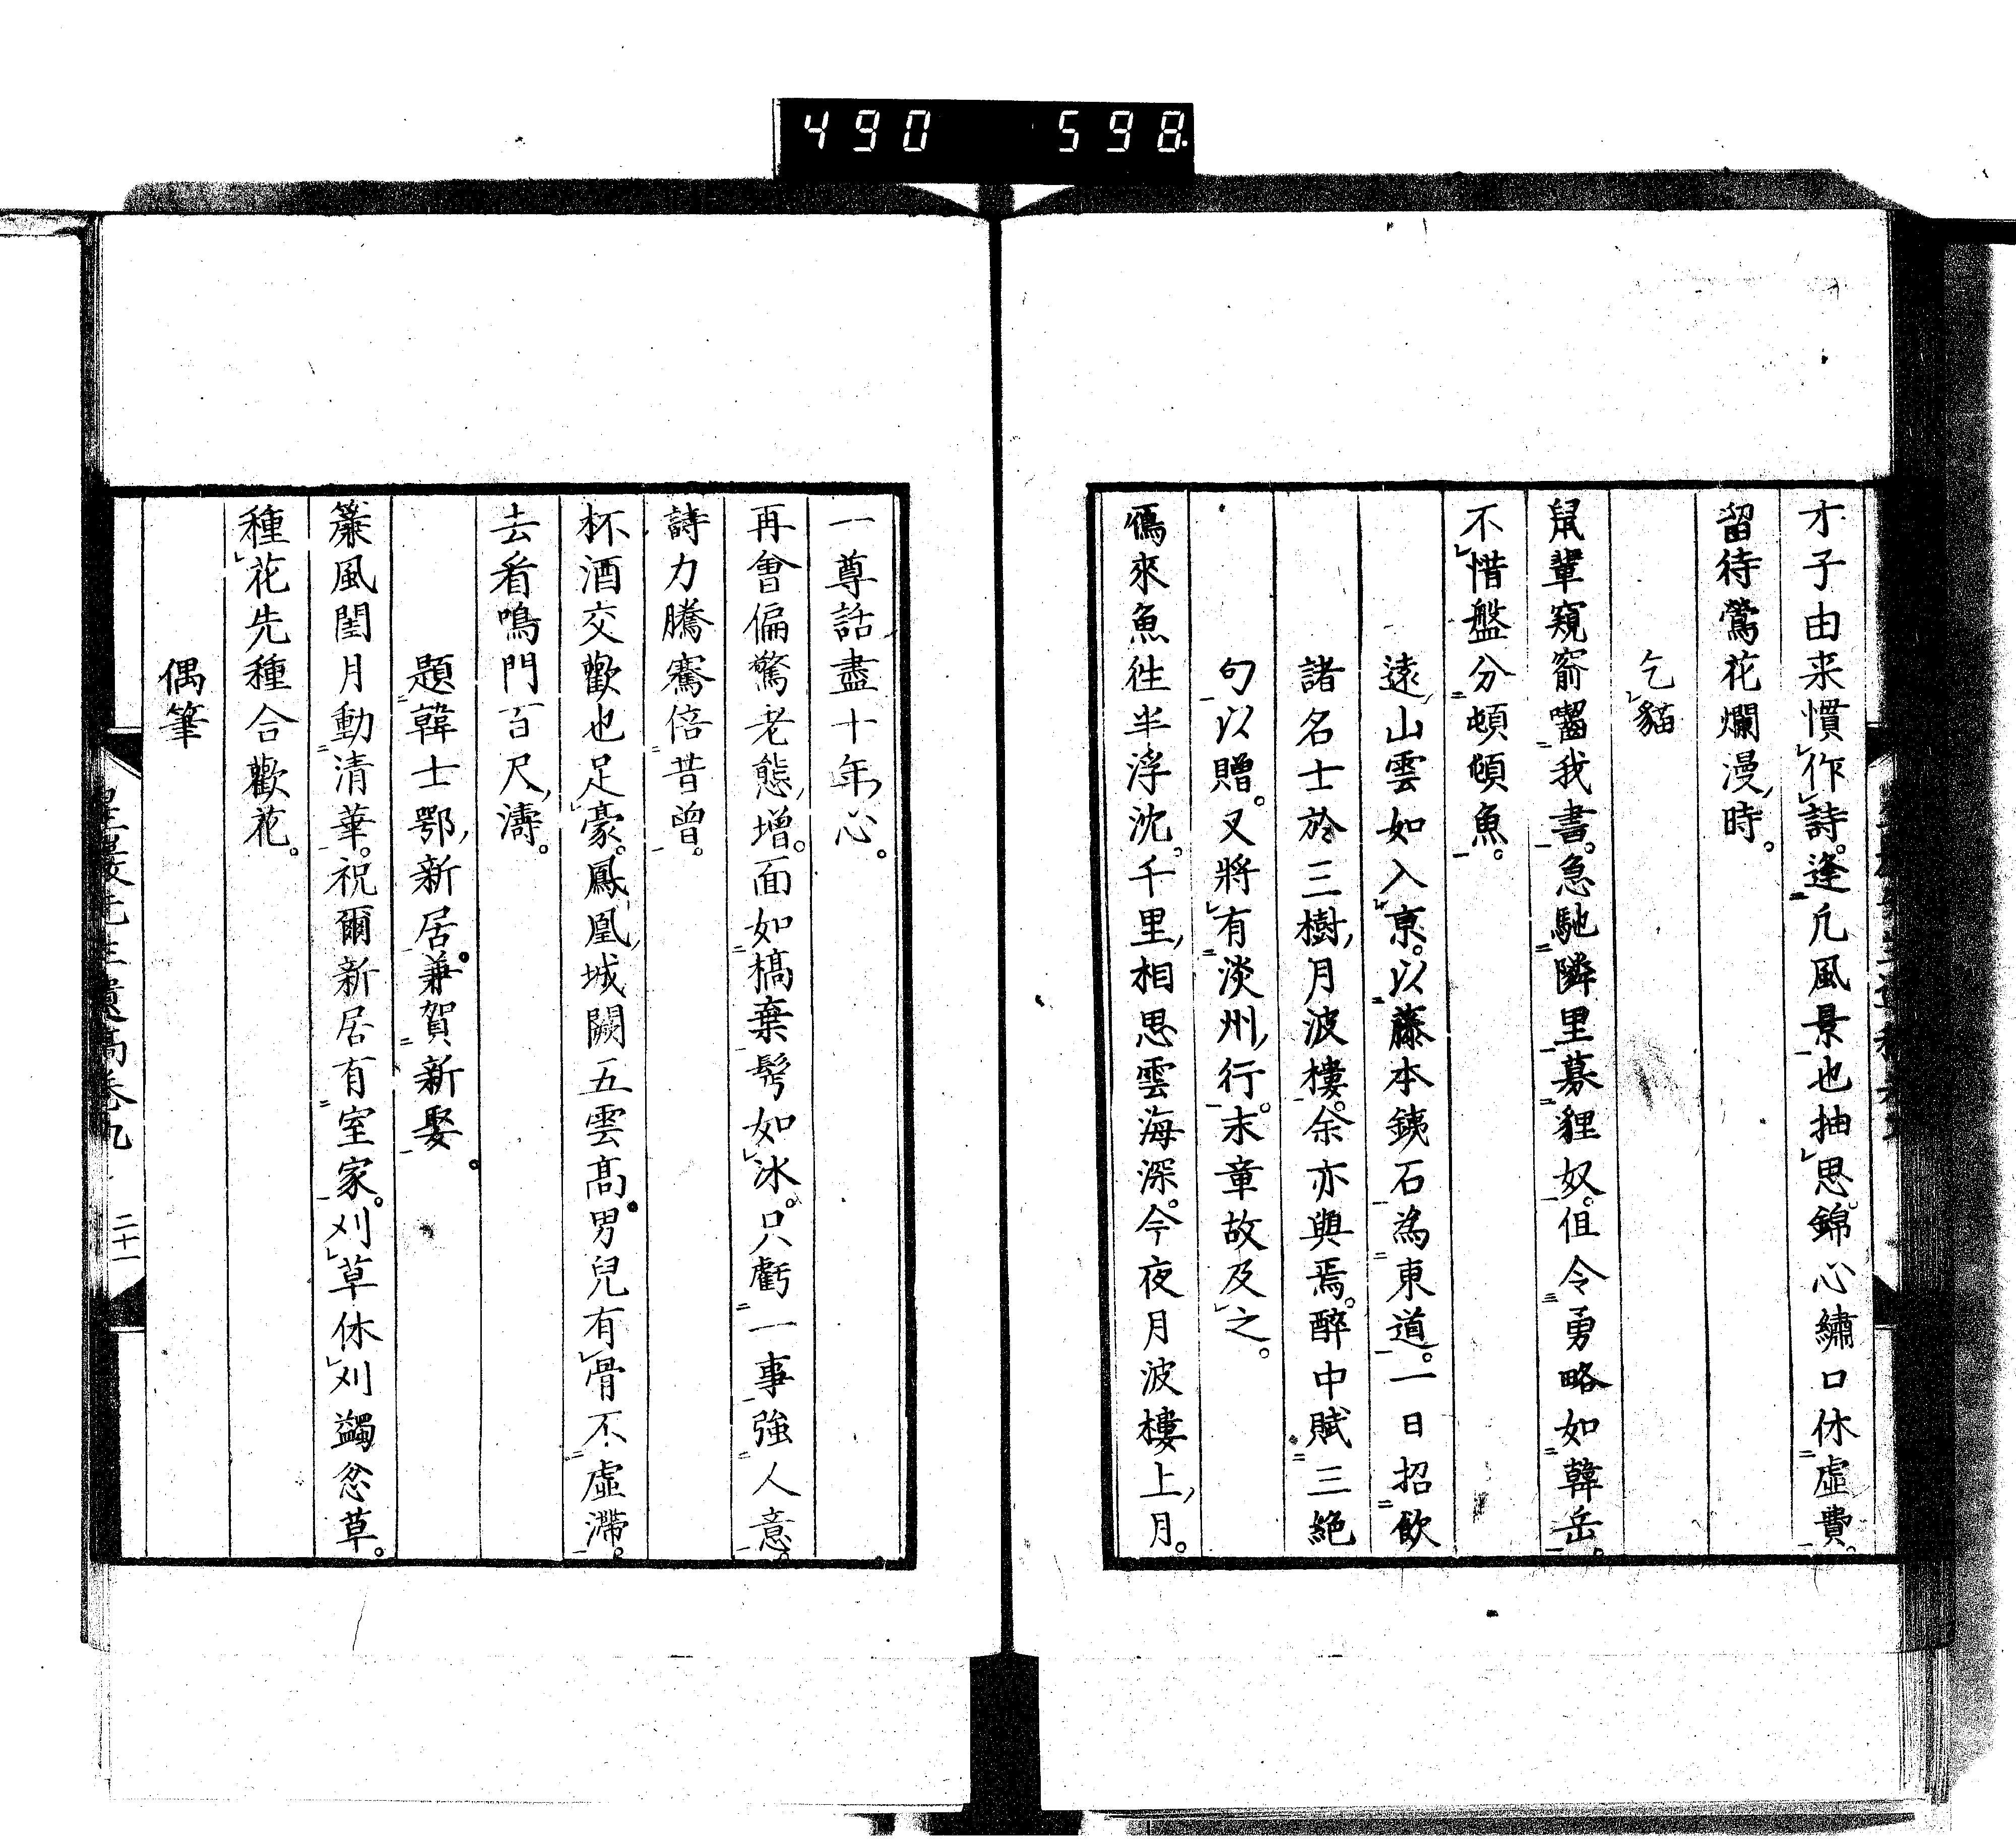 490 598
才子由来慣作詩。逢凢風景也抽思。錦心繡口休虛費。
留待鶯花爛漫時。
乞貓
鼠輩窺窬齧我書。急馳隣里募貍奴。但令勇略如韓岳。
不惜盤分頓頓魚。
遠山雲如入京。以藤本銕石為東道。一日招飲
諸名士於三樹月波樓。余亦與焉。醉中賦三絶
句以贈。又將有淡州行。末章故及之。
鴈來魚徃半浮沈。千里相思雲海深。今夜月波樓上月。
一尊話盡十年心。
再會偏驚老態增。面如槁棄髩如冰。只虧一事強人意。
詩力騰騫倍昔曾。
杯酒交歡也足豪。鳳凰城闕五雲髙。男兒有骨不虛滯。
去看鳴門百尺濤。
題韓士鄂新居。兼賀新娶。
簾風閨月動清華。祝爾新居有室家。刈草休刈蠲忿草。
種花先種合歡花。
偶筆
先生遺高卷九 二十一